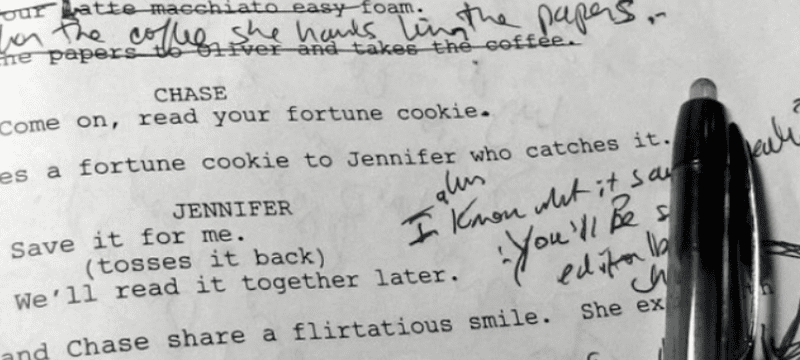 our Latte macchiato easy foam.
the coffee she hands him the papers.
he papers to Oliver and takes the coffee.
CHASE
Come on, read your fortune cookie.
es a fortune cookie to Jennifer who catches it.
JENNIFER
I know what it
Save it for me.
You'll Be
(tosses it back)
We'll read it together later.
and Chase share a flirtatious smile. She ex